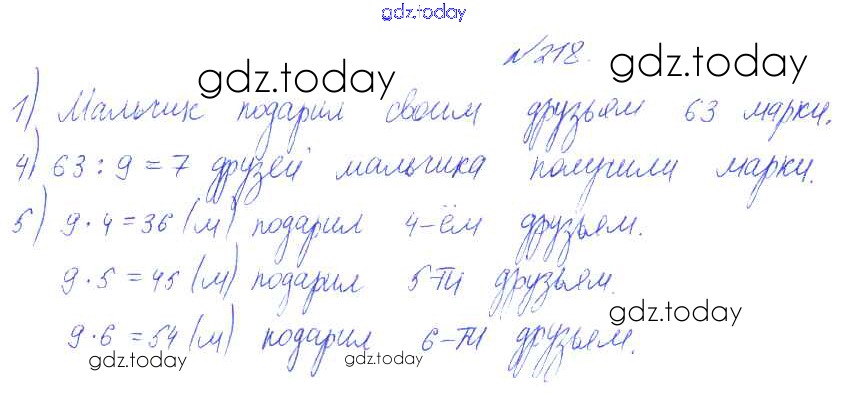 gdz.today
№218.
gdz.today gdz.today
1) Мальчик подарил своим друзьям 63 марки.
4) 63 : 9 = 7 друзей мальчика получили марки.
5) 9 · 4 = 36 (м) подарил 4-ём друзьям.
9 · 5 = 45 (м) подарил 5ти друзьям.
gdz.today
9 · 6 = 54 (м) подарил 6-ти друзьям.
gdz.today gdz.today